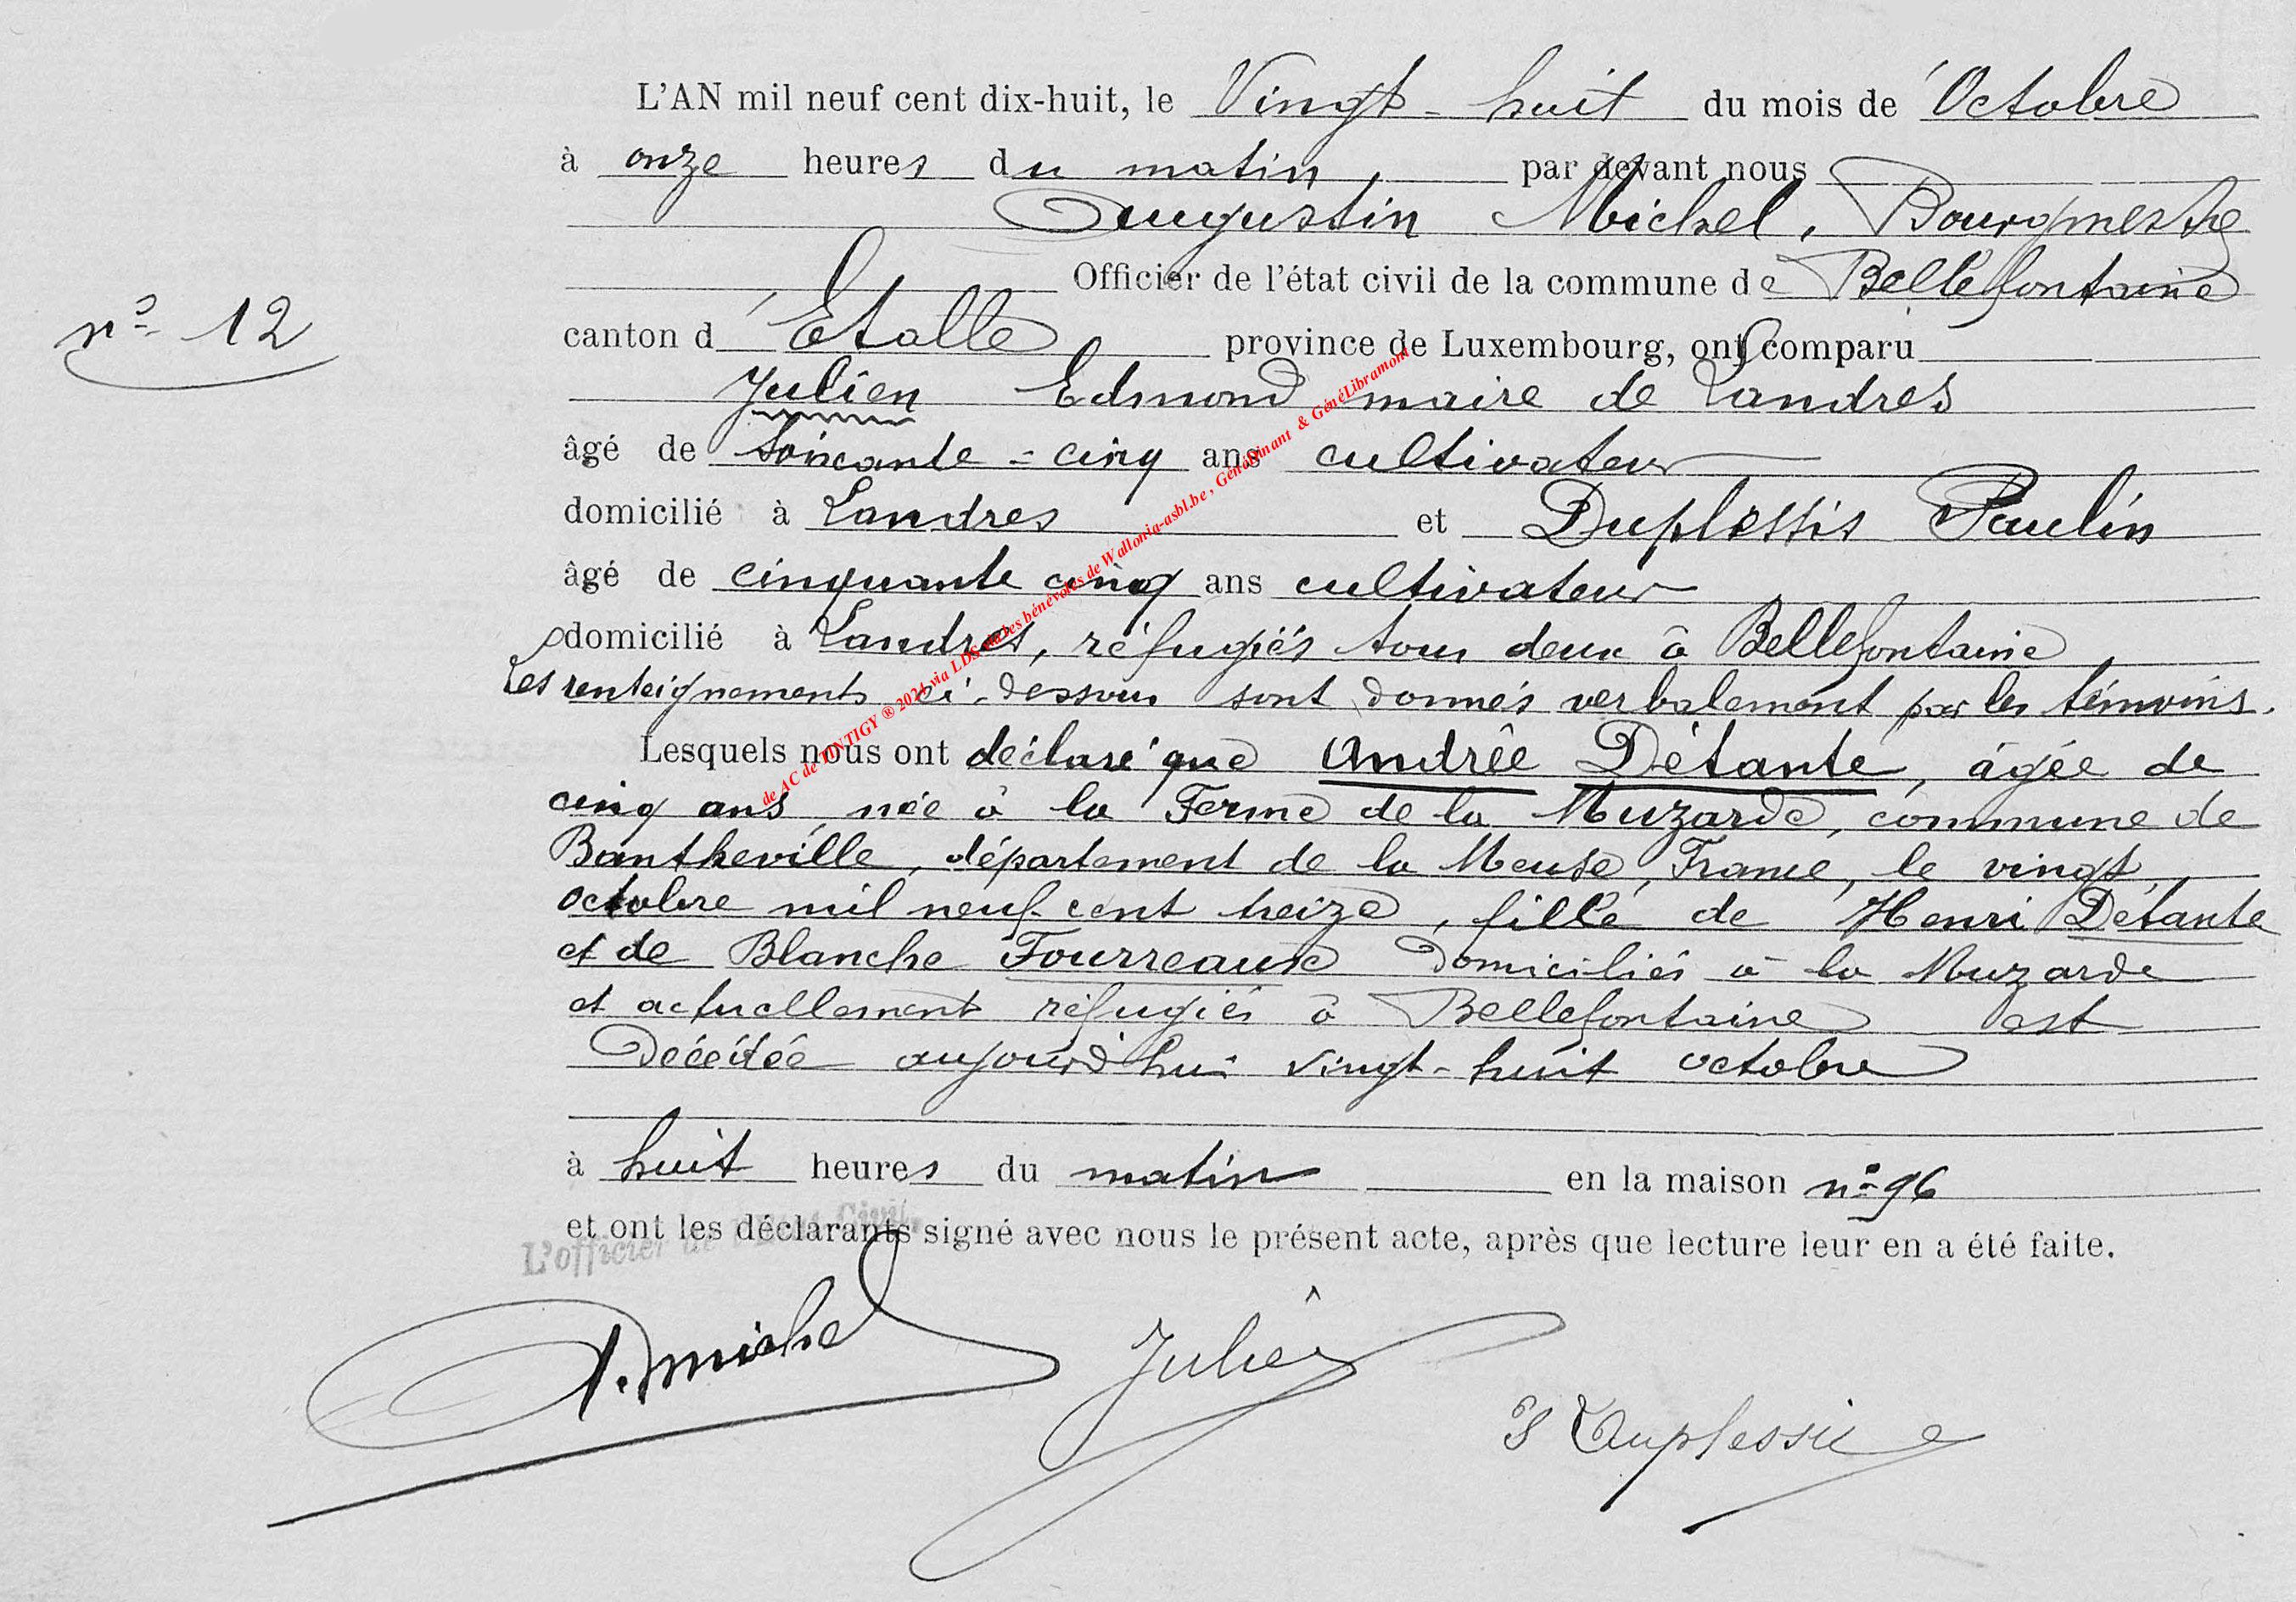 L'AN mil neuf cent dix-huit, le Vingt-huit du mois de Octobre
à onze heures du matin, par devant nous
Augustin Michel, Bourgmestre
Officier de l'état civil de la commune de Bellefontaine
n° 12
canton d'Etalle province de Luxembourg, ont comparu
Julien Edmond maire de Landres
âgé de soixante-cinq ans cultivateur
domicilié à Landres et Duplessis Paulin
âgé de cinquante cinq ans cultivateur
domicilié à Landres, réfugiés tous deux à Bellefontaine
Les renseignements ci-dessous sont donnés verbalement par les témoins.
Lesquels nous ont déclaré que Andrée Détante, âgée de
cinq ans née à la Ferme de la Muzarde, commune de
Bantheville, département de la Meuse, France, le vingt
octobre mil neuf cent treize, fille de Henri Détante
et de Blanche Fourreaux domiciliés à la Muzarde
et actuellement réfugiés à Bellefontaine est
décédée aujourd'hui vingt-huit octobre
à huit heures du matin en la maison n° 96
et ont les déclarants signé avec nous le présent acte, après que lecture leur en a été faite.
L'officier de l'Etat Civil,
A. Michel
Julien
P Duplessis
de AC de TINTIGY ® 2024 via LDS via les bénévoles de Wallonia-asbl.be, GénéDinant & GénéLibramont